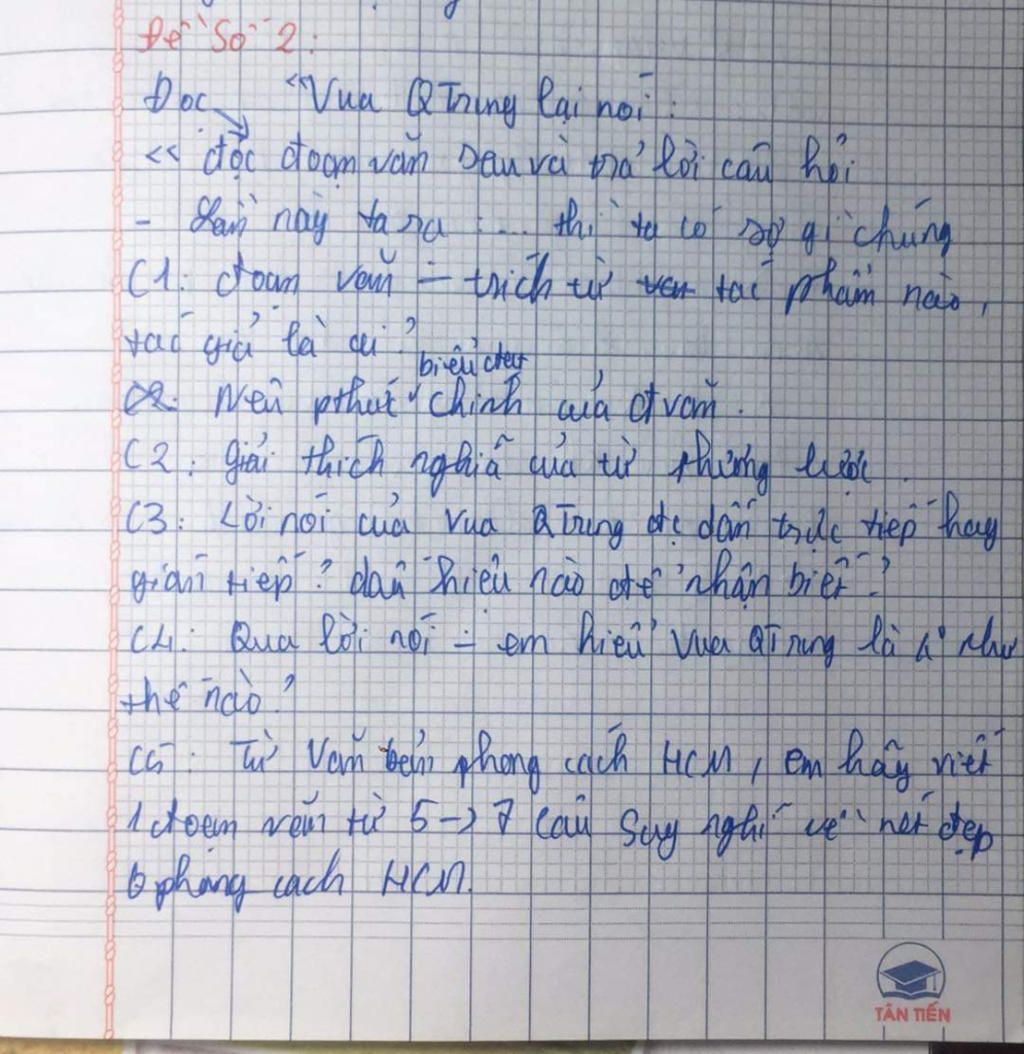 Đề Số 2:
Đọc "Vua QTrung lại nói:
<< đọc đoạn văn sau và trả lời câu hỏi
- Lần này ta ra .... thì ta có sợ gì chúng
C1: đoạn văn - trích từ tác phẩm nào,
tác giả là ai?
biểu đạt
C2: Nêu pthức chính của đvăn.
C2: giải thích nghĩa của từ phương lược.
C3: Lời nói của vua QTrung đc dẫn trực tiếp hay
gián tiếp? dấu hiệu nào để nhận biết?
C4: Qua lời nói - em hiểu vua QTrung là như
thế nào?
C5: Từ văn bản phong cách HCM, em hãy viết
1 đoạn văn từ 5->7 câu suy nghĩ về nét đẹp
phong cách HCM.
TÂN TIẾN